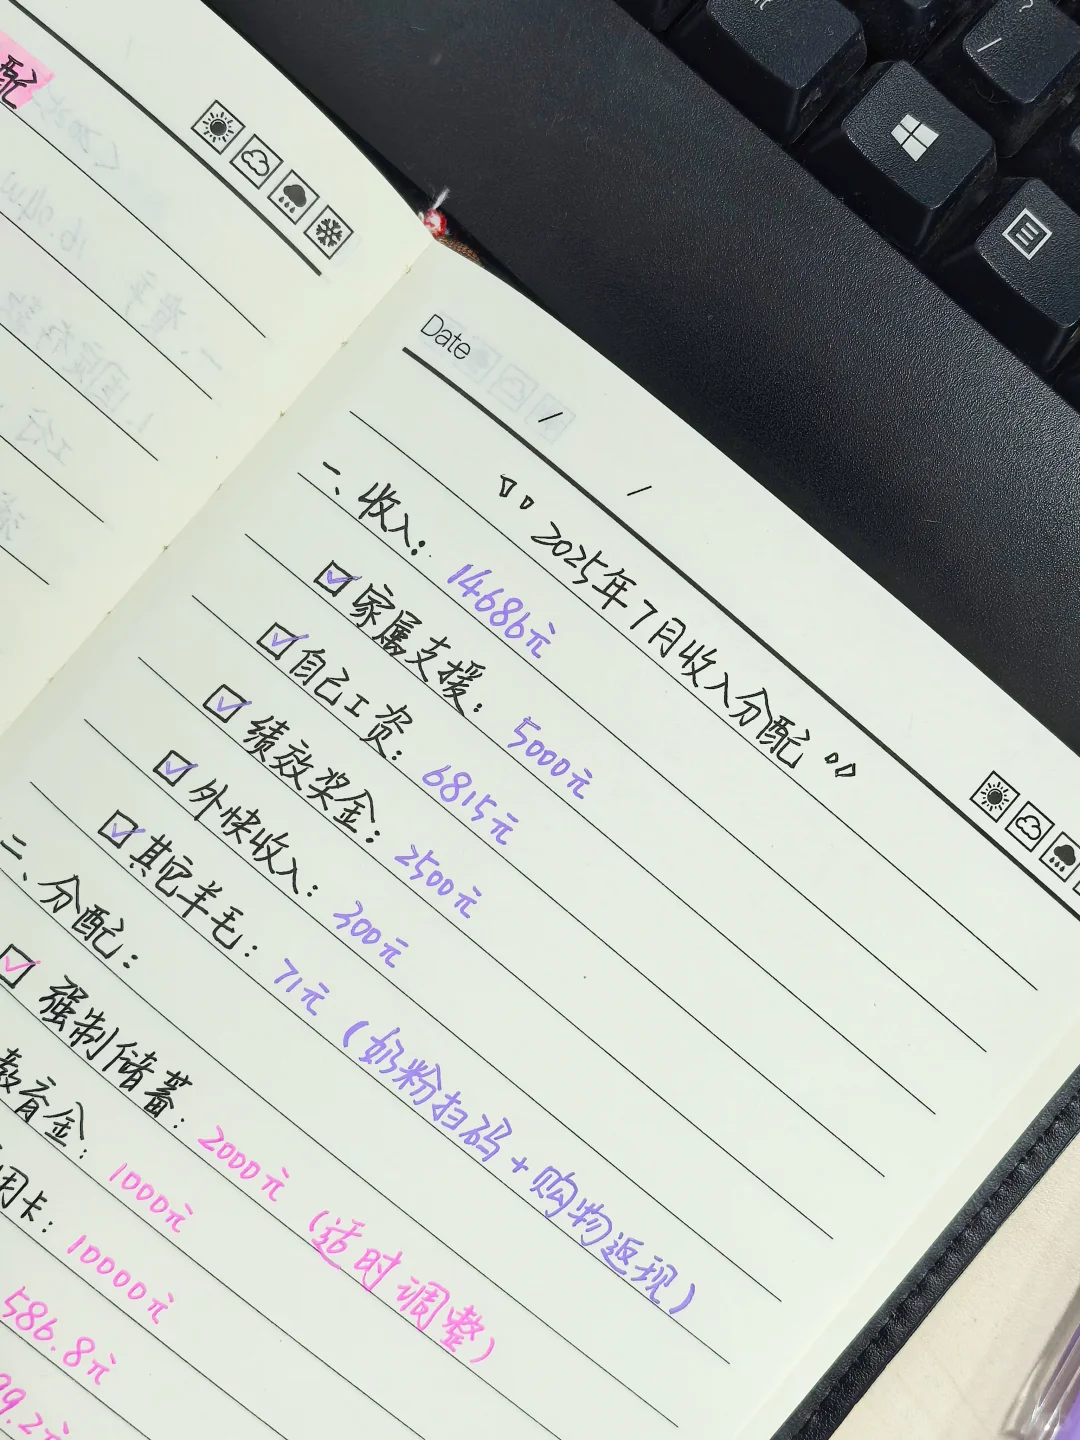 配
Date / /
“ 2025年7月收入分配 ”
一、收入: 14686元
家属支援: 5000元
自己工资: 6815元
绩效奖金: 2500元
外快收入: 300元
其它羊毛: 71元 (奶粉扫码+购物返现)
二、分配:
强制储蓄: 2000元 (适时调整)
教育金: 1000元
用卡: 10000元
586.8元
99.2元